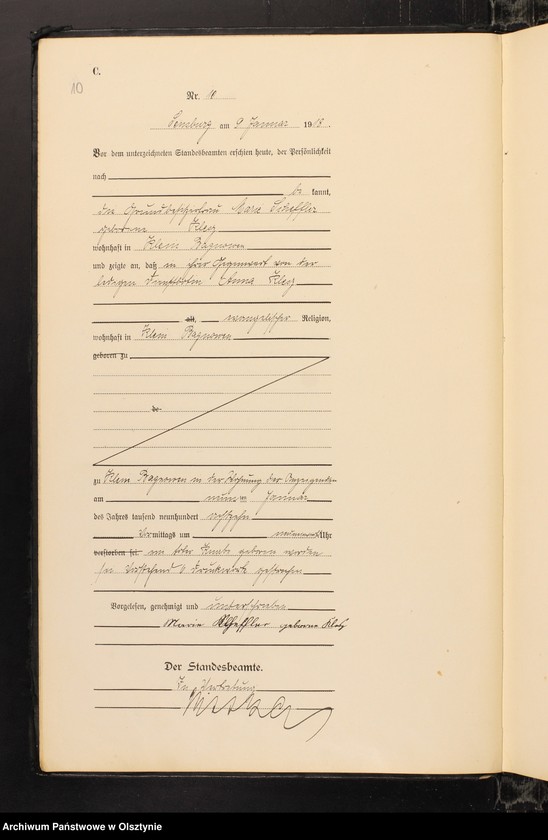 C.
10
Nr. 10
Sensburg am 9 Januar 1918.
Vor dem unterzeichneten Standesbeamten erschien heute, der Persönlichkeit
nach
be kannt,
die Grundbesitzerfrau Marie Scheffler
geborene
wohnhaft in Klein Bagnowen
und zeigte an, daß in ihrer Gegenwart von der
ledigen Anna
alt, evangelischer Religion,
wohnhaft in Klein Bagnowen
geboren zu
de
zu Klein Bagnowen in der Wohnung der Anzeigenden
am neunten Januar
des Jahres tausend neunhundert achtzehn
Vormittags um Uhr
verstorben sei. ein toter Knabe geboren worden
Vorstehend 6 Druckworte gestrichen
Vorgelesen, genehmigt und unterschrieben
Marie Scheffler geborene
Der Standesbeamte.
In Vertretung
Archiwum Państwowe w Olsztynie